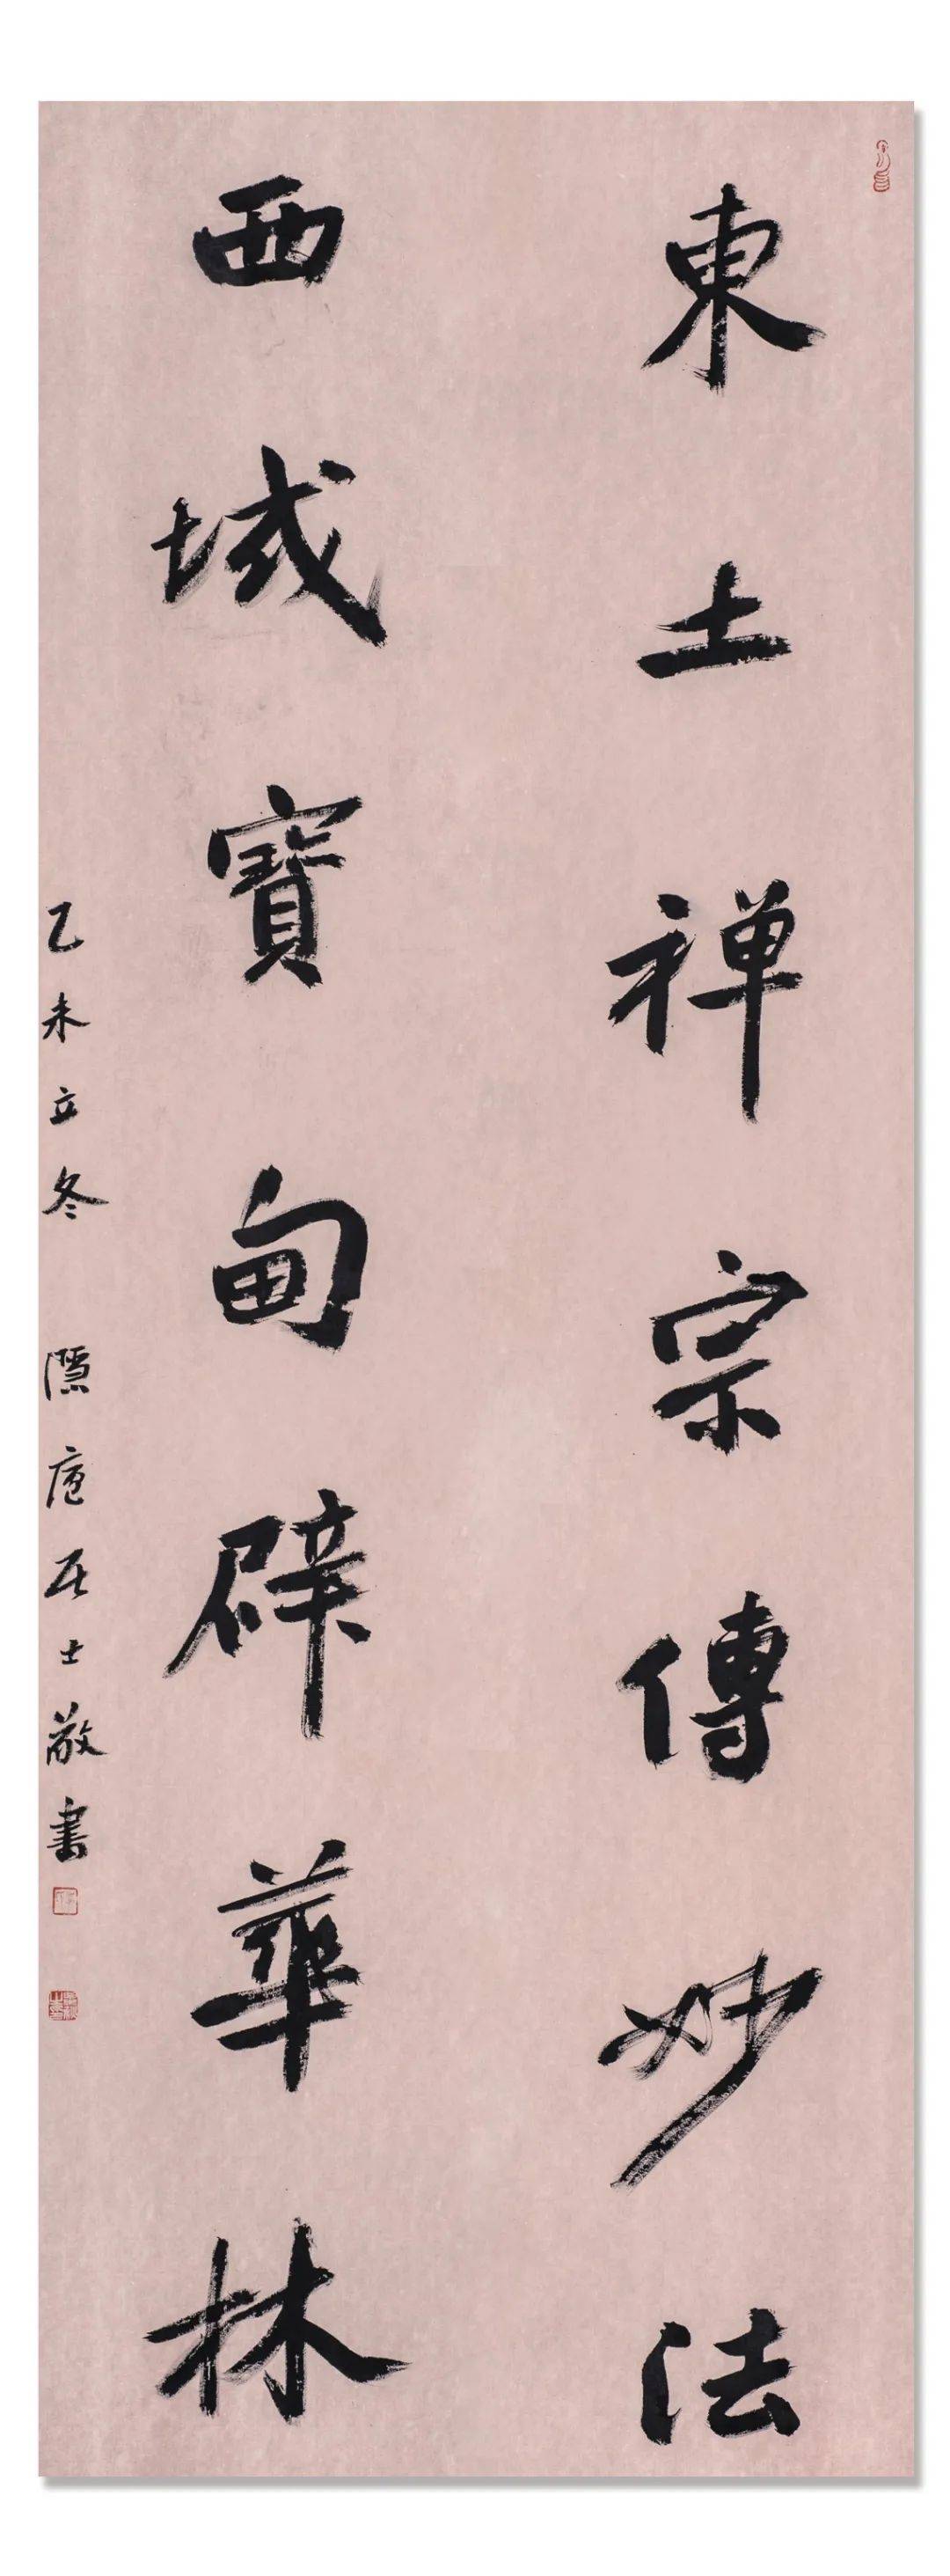 東土禅宗傳妙法
西域寶甸辟華林
乙未立冬 隱庵居士敬書